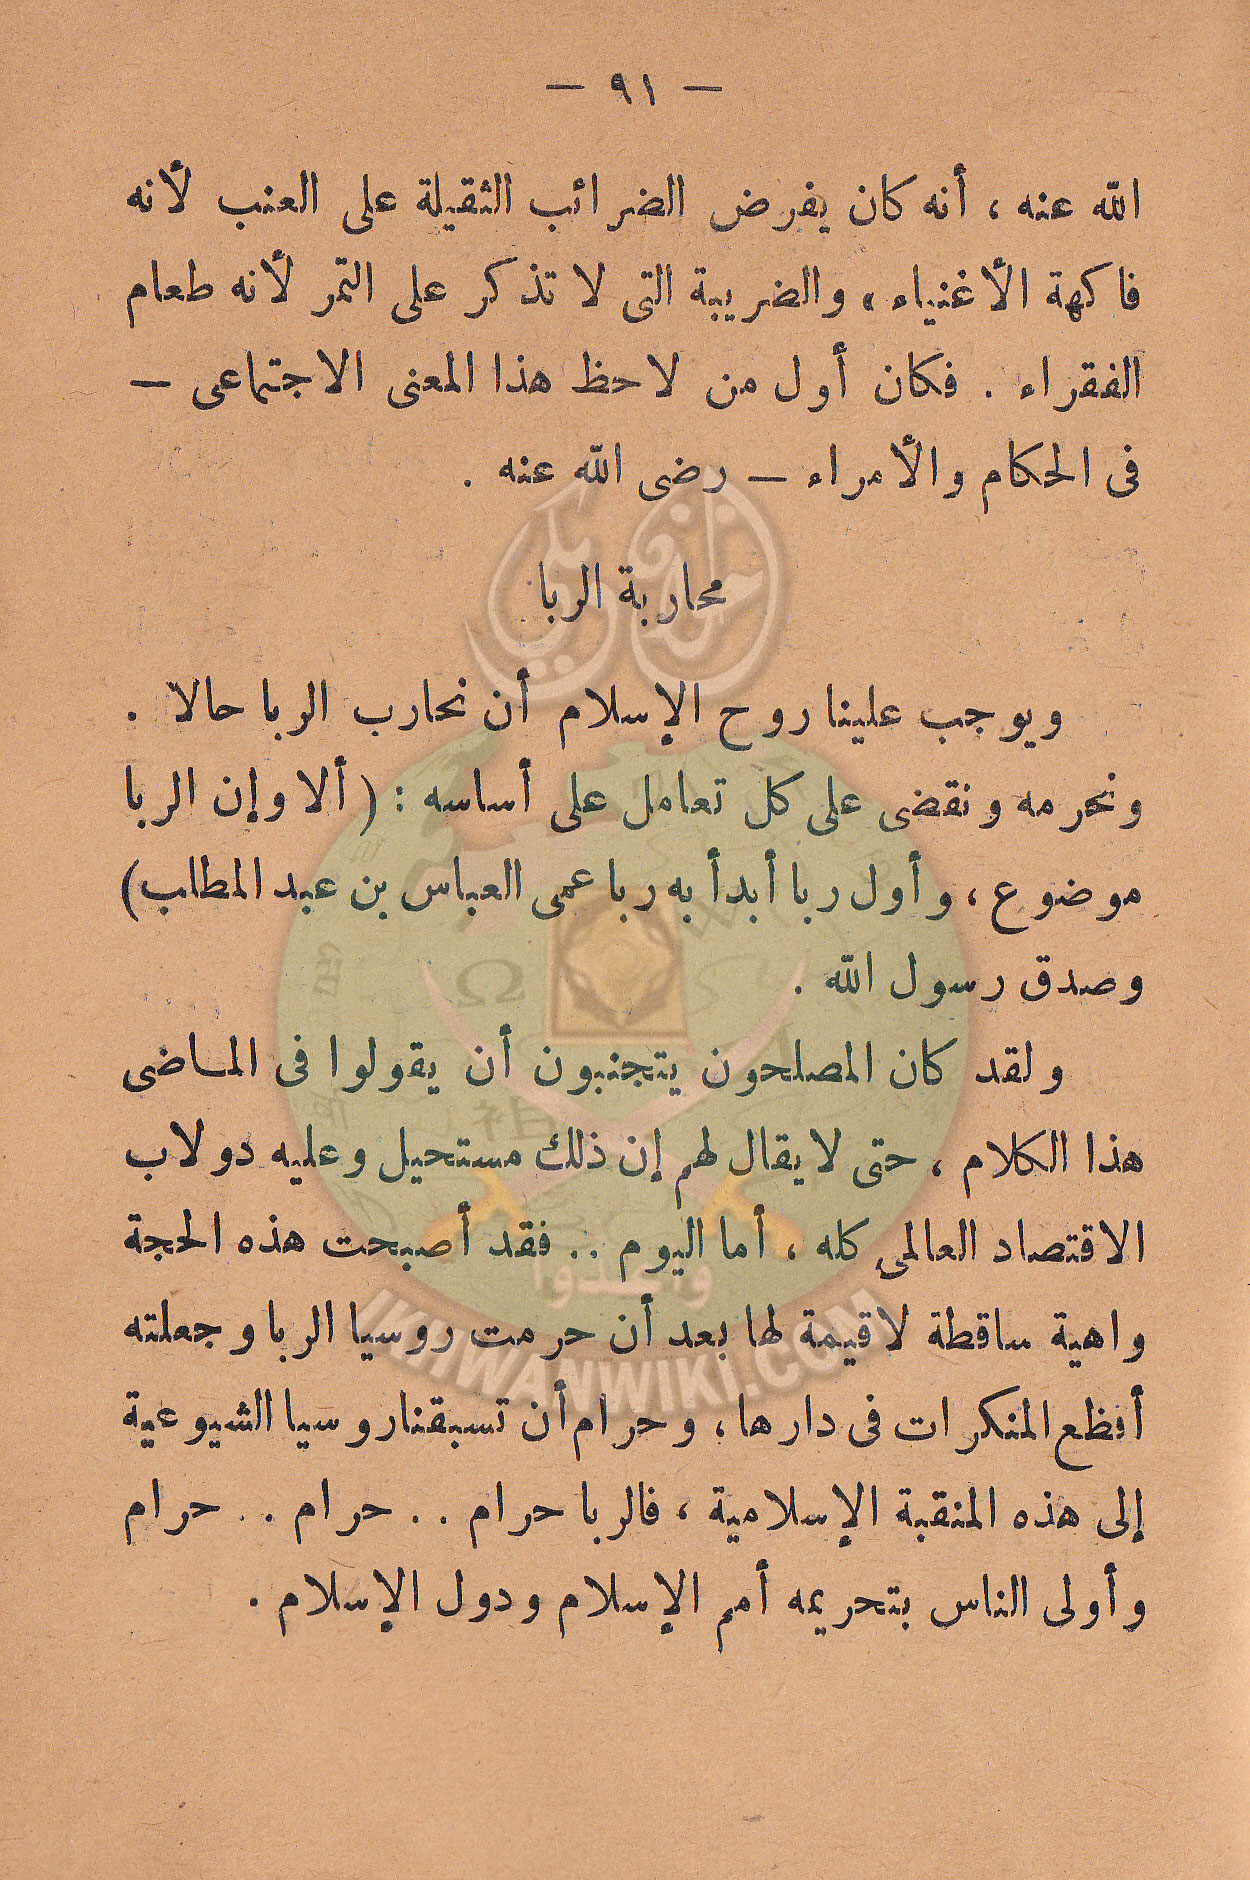 — ٩١ —
الله عنه ، أنه كان يفرض الضرائب الثقيلة على العنب لأنه
فاكهة الأغنياء ، والضريبة التى لا تذكر على التمر لأنه طعام
الفقراء . فكان أول من لاحظ هذا المعنى الاجتماعى —
فى الحكام والأمراء — رضى الله عنه .
محاربة الربا
ويوجب علينا روح الإسلام أن نحارب الربا حالا .
ونحرمه ونقضى على كل تعامل على أساسه : ( ألا وإن الربا
موضوع ، وأول ربا أبدأ به ربا عمى العباس بن عبد المطلب)
وصدق رسول الله .
ولقد كان المصلحون يتجنبون أن يقولوا فى الماضى
هذا الكلام ، حتى لا يقال لهم إن ذلك مستحيل وعليه دولاب
الاقتصاد العالمى كله ، أما اليوم .. فقد أصبحت هذه الحجة
واهية ساقطة لا قيمة لها بعد أن حرمت روسيا الربا وجعلته
أفظع المنكرات فى دارها ، وحرام أن تسبقنا روسيا الشيوعية
إلى هذه المنقبة الإسلامية ، فالربا حرام .. حرام .. حرام
وأولى الناس بتحريمه أمم الإسلام ودول الإسلام .
إخوان ويكي
وأعدوا
IKHWANWIKI.COM